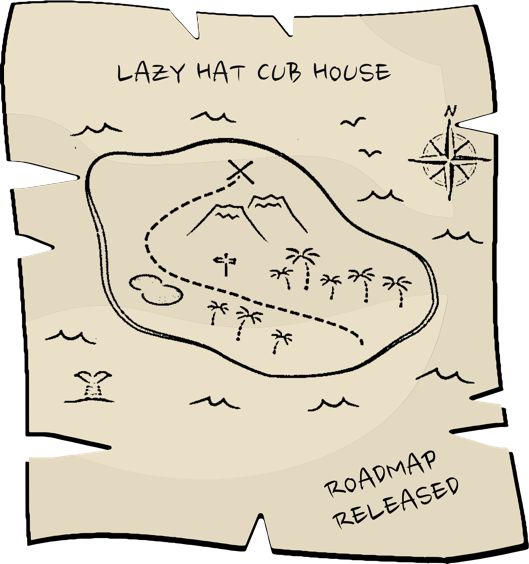 LAZY HAT CUB HOUSE
N
ROADMAP
RELEASED